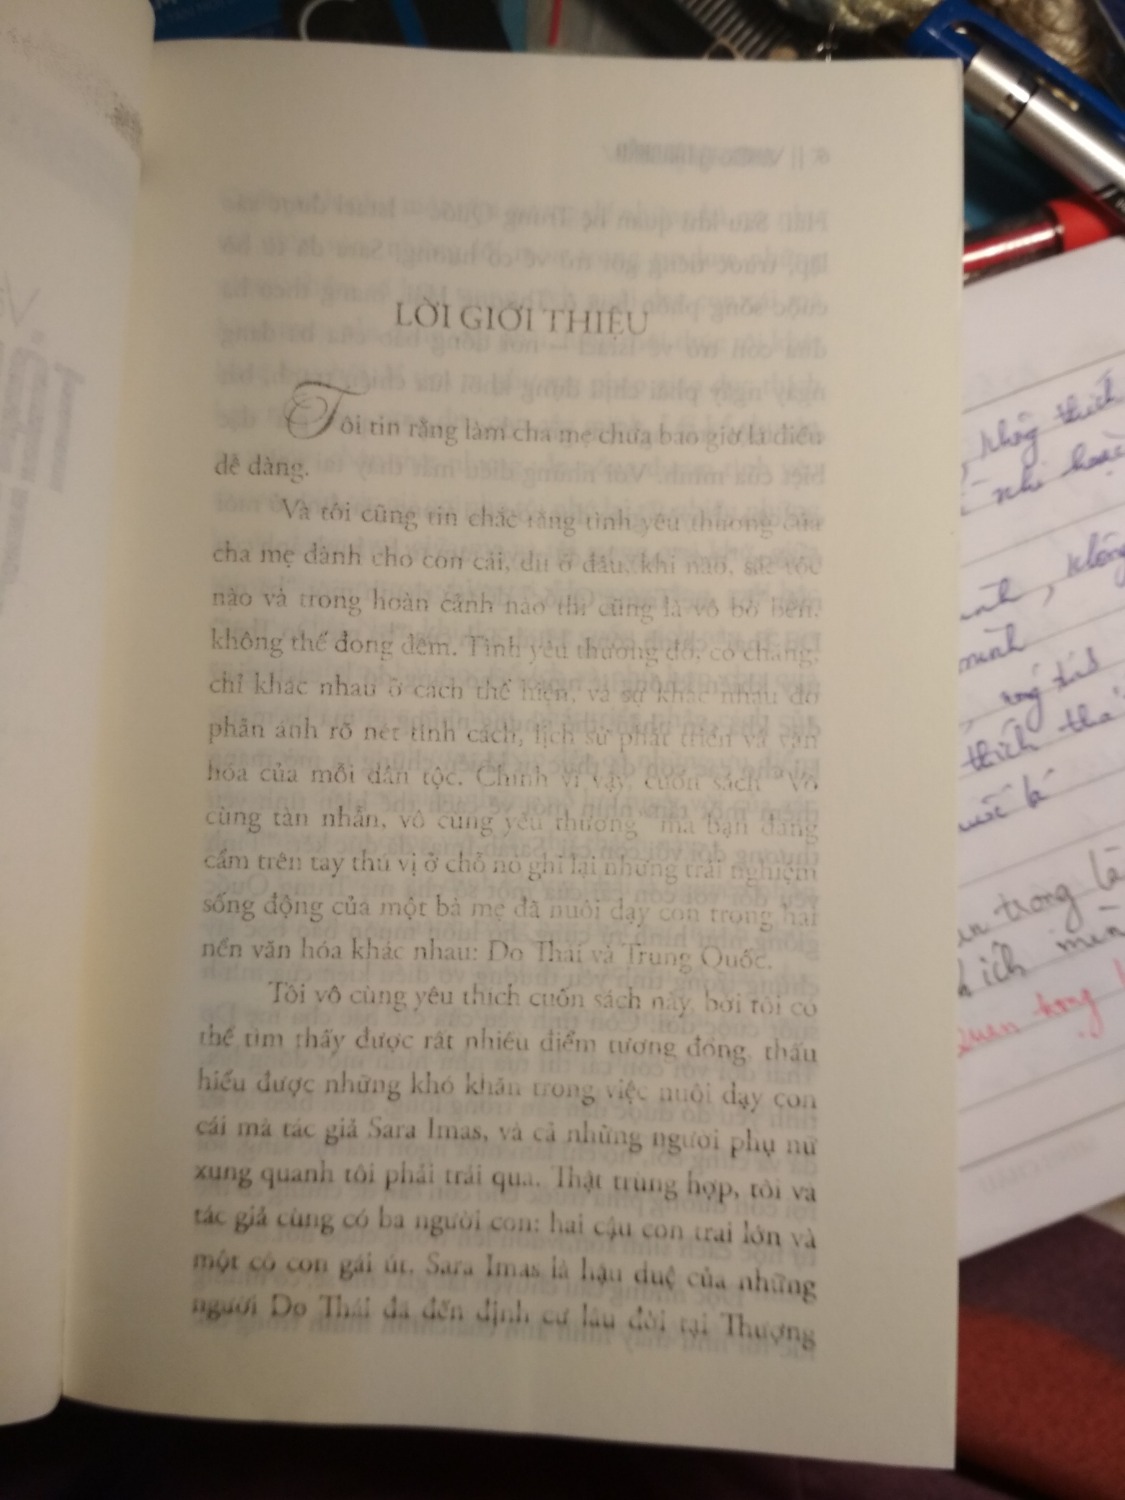 LỜI GIỚI THIỆU
Tôi tin rằng làm cha mẹ chưa bao giờ là điều
dễ dàng.
Và tôi cũng tin chắc rằng tình yêu thương của
cha mẹ dành cho con cái, dù ở đâu, khi nào, sắc tộc
nào và trong hoàn cảnh nào thì cũng là vô bờ bến,
không thể đong đếm. Tình yêu thương đó, có chăng,
chỉ khác nhau ở cách thể hiện, và sự khác nhau đó
phản ánh rõ nét tính cách, lịch sử phát triển và văn
hóa của mỗi dân tộc. Chính vì vậy, cuốn sách "Vô
cùng tàn nhẫn, vô cùng yêu thương" mà bạn đang
cầm trên tay thú vị ở chỗ nó ghi lại những trải nghiệm
sống động của một bà mẹ đã nuôi dạy con trong hai
nền văn hóa khác nhau: Do Thái và Trung Quốc.
Tôi vô cùng yêu thích cuốn sách này, bởi tôi có
thể tìm thấy được rất nhiều điểm tương đồng, thấu
hiểu được những khó khăn trong việc nuôi dạy con
cái mà tác giả Sara Imas, và cả những người phụ nữ
xung quanh tôi phải trải qua. Thật trùng hợp, tôi và
tác giả cùng có ba người con: hai cậu con trai lớn và
một cô con gái út. Sara Imas là hậu duệ của những
người Do Thái đã đến định cư lâu đời tại Thượng
không thích
nhi
không
mình
thích
trong
ích
quan trọng